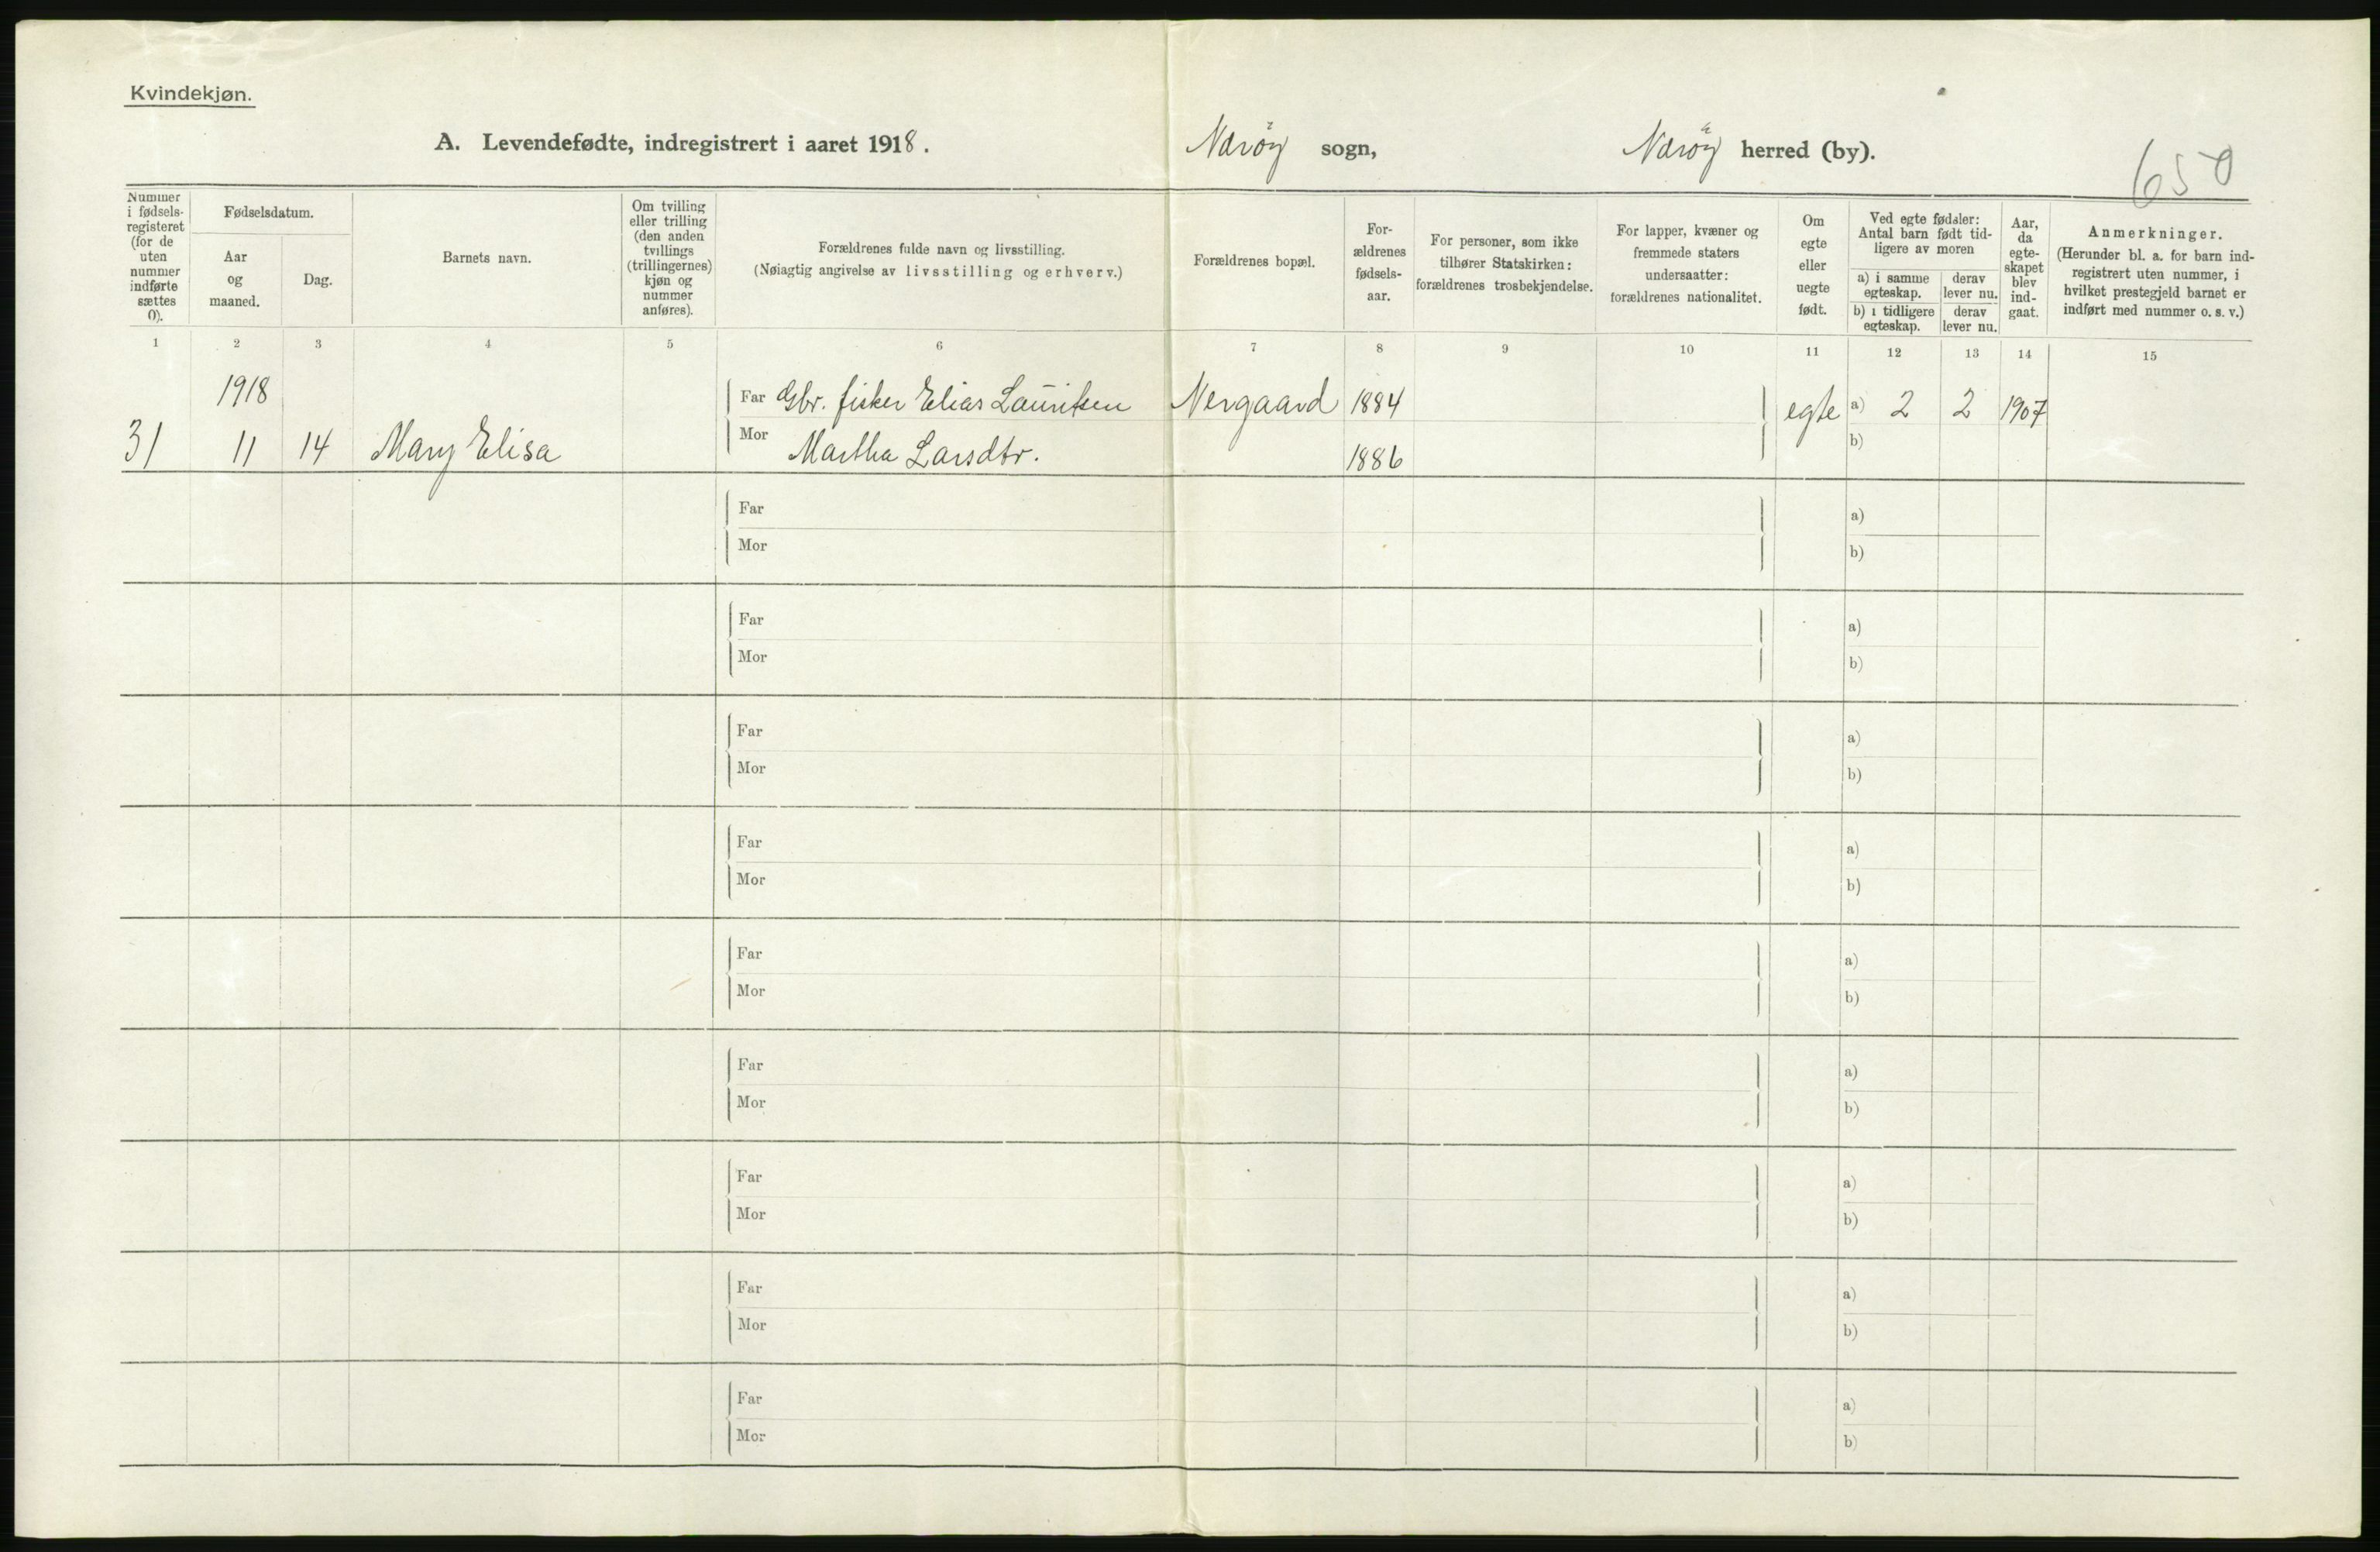 Kvindekjøn.
A. Levendefødte, indregistrert i aaret 1918.
Nærøy sogn,
Nærøy herred (by).
650
Nummer i fødsels-registeret (for de uten nummer indførte sættes 0).
Fødselsdatum.
Aar og maaned.
Dag.
Barnets navn.
Om tvilling eller trilling (den anden tvillings (trillingernes) kjøn og nummer anføres).
Forældrenes fulde navn og livsstilling.
(Nøiagtig angivelse av livsstilling og erhverv.)
Forældrenes bopæl.
For-ældrenes fødsels-aar.
For personer, som ikke tilhører Statskirken: forældrenes trosbekjendelse.
For lapper, kvæner og fremmede staters undersaatter: forældrenes nationalitet.
Om egte eller uegte født.
Ved egte fødsler: Antal barn født tid-ligere av moren
a) i samme egteskap.
derav lever nu.
b) i tidligere egteskap.
derav lever nu.
Aar, da egte-skapet blev ind-gaat.
Anmerkninger.
(Herunder bl. a. for barn ind-registrert uten nummer, i hvilket prestegjeld barnet er indført med nummer o. s. v.)
1 2 3 4 5 6 7 8 9 10 11 12 13 14 15
1918
Far Gbr. fisker Elias Lauritsen Nergaard 1884 egte a) 2 2 1907
31 11 14 Mary Elisa Mor Martha Larsdtr. 1886 b)
Far a)
Mor b)
Far a)
Mor b)
Far a)
Mor b)
Far a)
Mor b)
Far a)
Mor b)
Far a)
Mor b)
Far a)
Mor b)
Far a)
Mor b)
Far a)
Mor b)